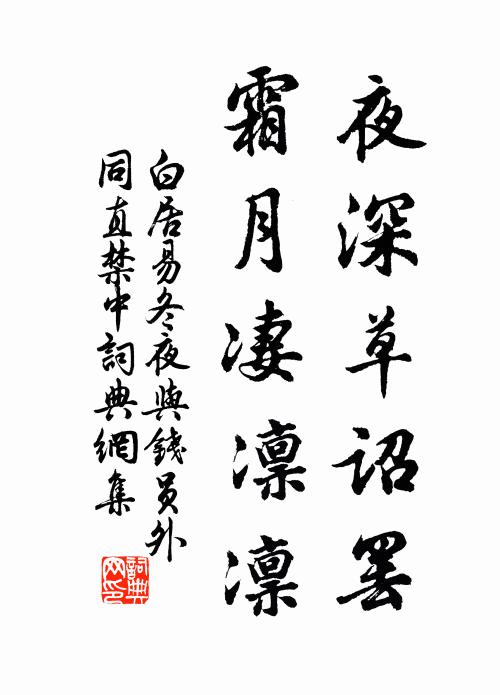 夜深草詔罷
霜月凄凛凛
白居易冬夜與錢員外
同直禁中詞典網集
詞典
网印